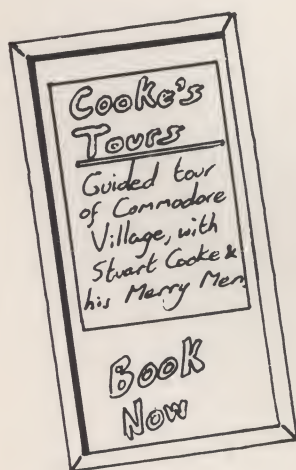 Cooke's
Tours
Guided tour
of Commodore
Village, with
Stuart Cooke &
his Merry Men
Book
Now